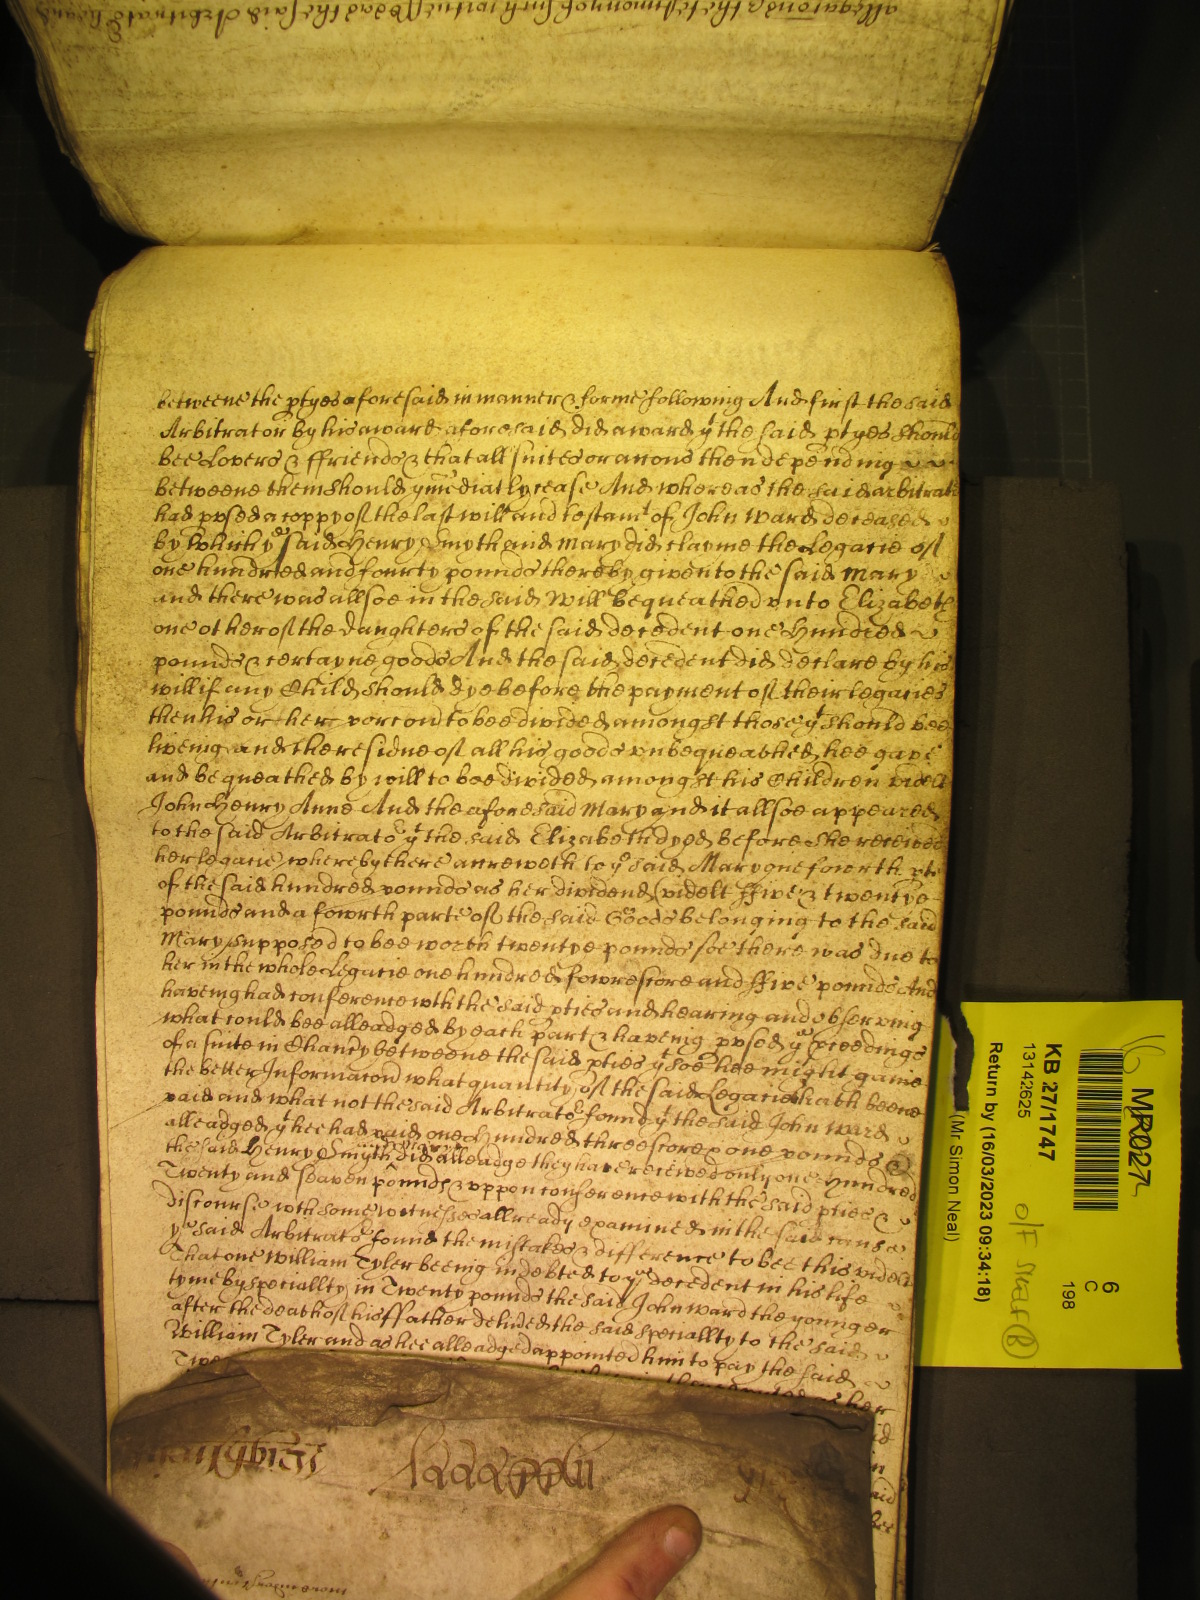 betweene the ptyes aforesaid in manner & forme following And first the said
Arbitrator by his award aforesaid did award yt the said ptyes should
bee Lovers & ffriends & that all suites or accons then depending
betweene them should ymediatly cease And whereas the said arbitrator
had pvsed a coppy of the last will and testamt of John Ward deceased
by which ye said Henry Smyth and Mary did clayme the Legacie of
one hundred and fourty pounds thereby given to the said Mary
and there was allsoe in the said Will bequeathed vnto Elizabeth
one other of the daughters of the said decedent one Hundred
pounds & certayne goods And the said decedent did declare by his
will if any Child should dye before the payment of their legacies
then his or her porcon to bee divided amongst those yt should bee
liveing and the residue of all his goods vnbequeathed hee gave
and bequeathed by will to bee divided amongst his Children videlt
John Henry Anne And the aforesaid Mary and it allsoe appeared
to the said Arbitrator yt the said Elizabeth dyed before she received
her legacie whereby there accreweth to ye said Mary one fowrth pte
of the said hundred pounds as her dividend videlt ffive & twentye
pounds and a fowrth parte of the said Goods belonging to the said
Mary supposed to bee worth twentye pounds soe there was due to
her in the whole Legacie one hundred fowrescore and ffive pounds And
haveing had conference wth the said pties and hearing and observing
what could bee alleadged by each part & haveing pvsed ye pceedings
of a suite in Chancry betweene the said pties yt soe hee might gaine
the better Informacon what quantity of the said Legacie hath beene
paid and what not the said Arbitrator found yt the said John Ward
alleadged yt hee had paid one Hundred threescore & one pounds &
the said Henry Smyth did alleadge they have received only one Hundred
Twenty and seaven pounds & vppon conference with the said pties &
discourse wth some witnesses allready examined in the said cause
ye said Arbitrator found the mistakes & difference to bee this videlt
That one William Tyler beeing indebted to ye decedent in his life
tyme by speciallty in Twenty pounds the said John Ward the younger
after the death of his ffather delivred the said speciallty to the said
William Tyler and as hee alleadged appointed him to pay the said
her
MR027
KB 27/1747
13142625
Return by (16/03/2023 09:34:18)
(Mr Simon Neal)
6
C
198